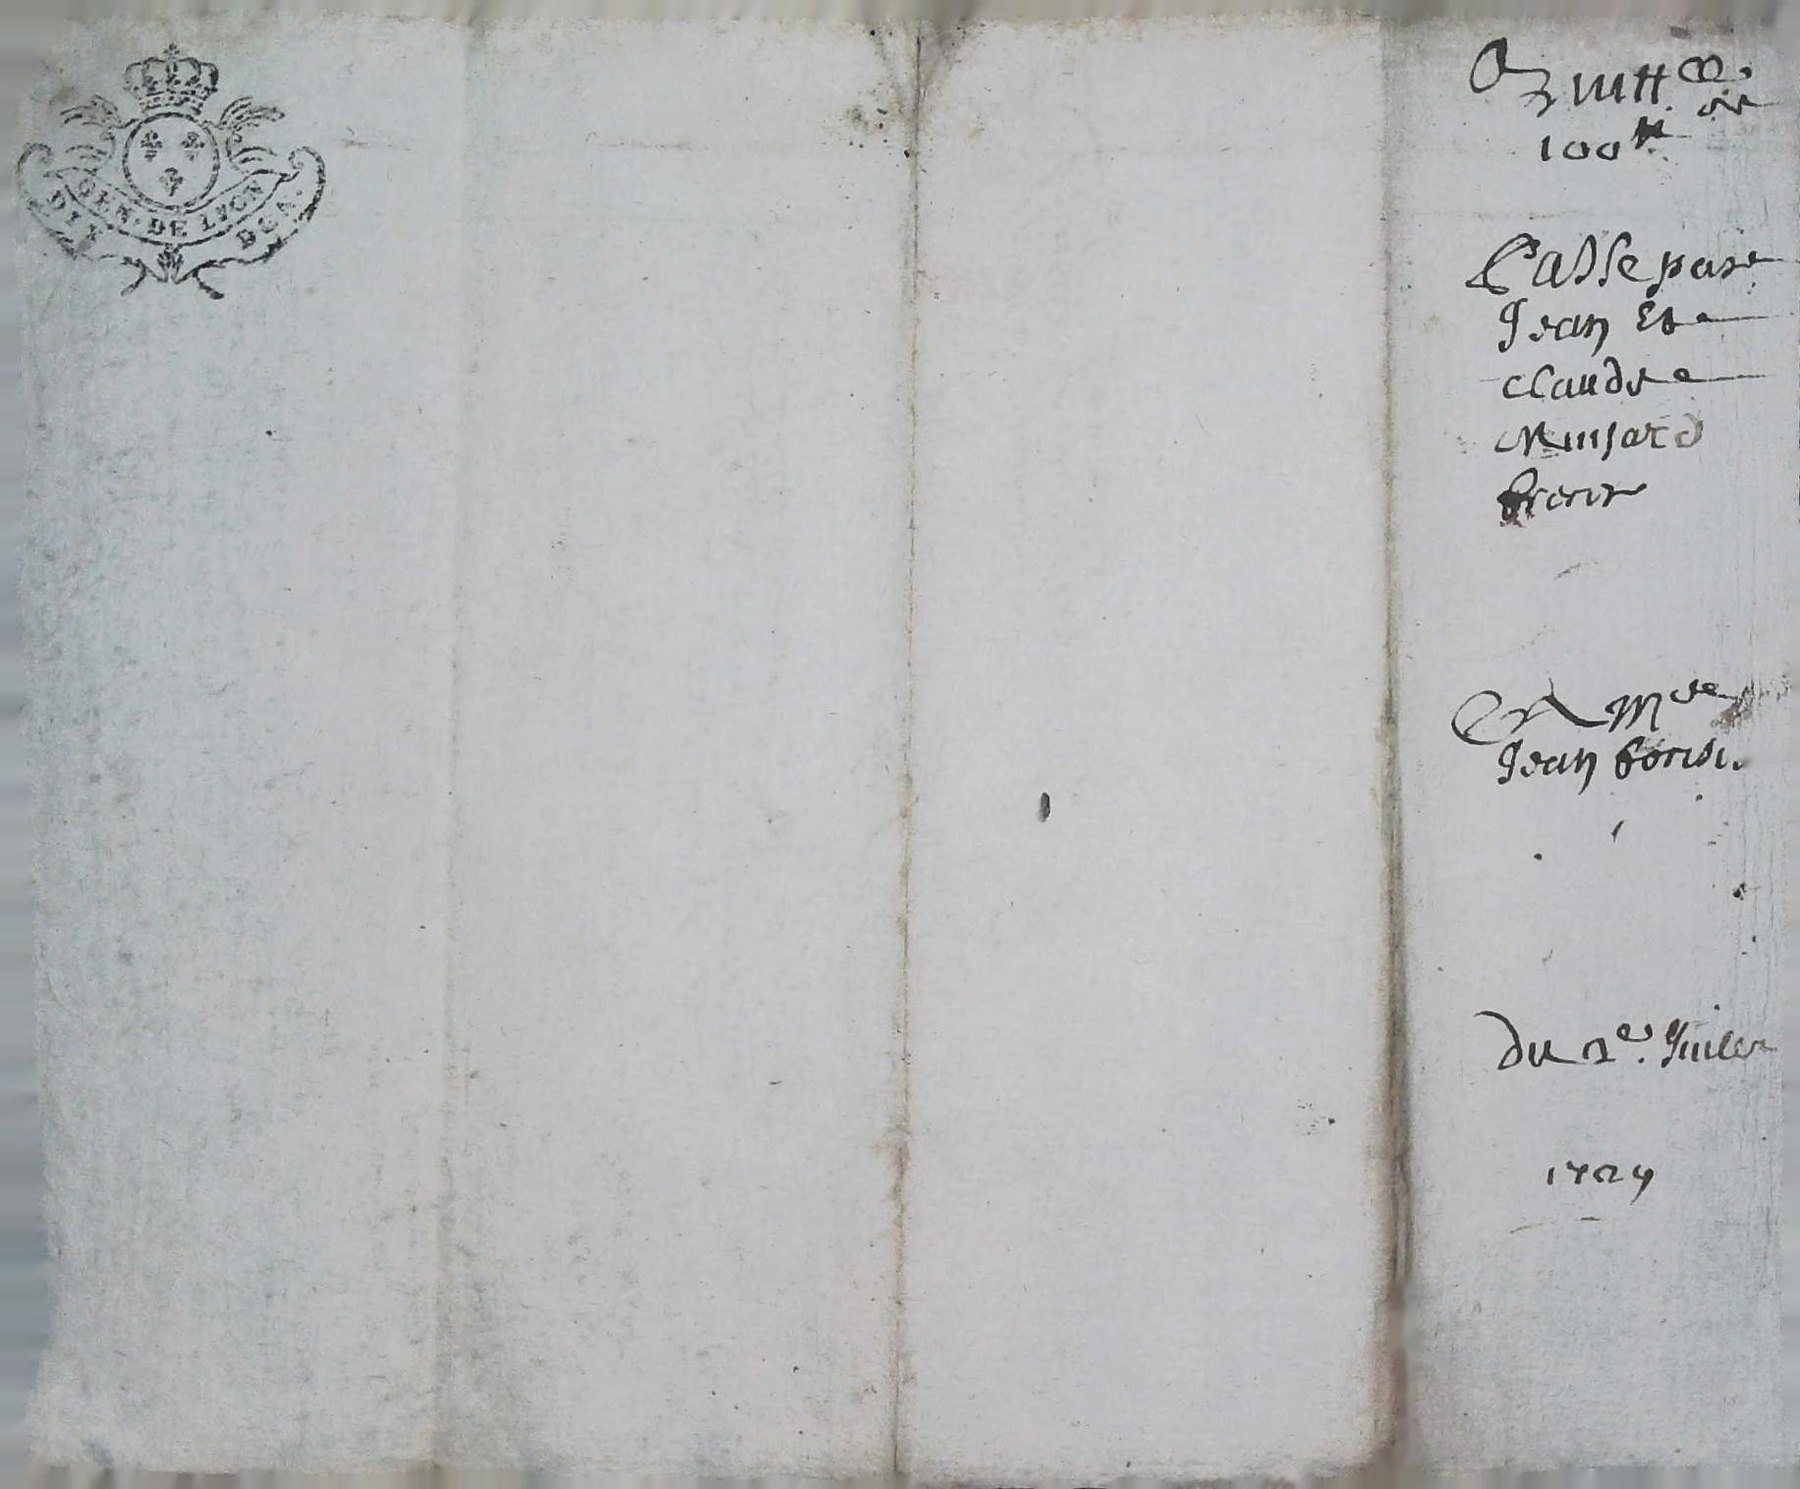 GEN. DE LYON
DIX DEN.
Quitt ce de
100 tt
Passe par
Jean Et
Claude
Minjard
freres
A Mre
Jean
du 2e. Juillet
1729